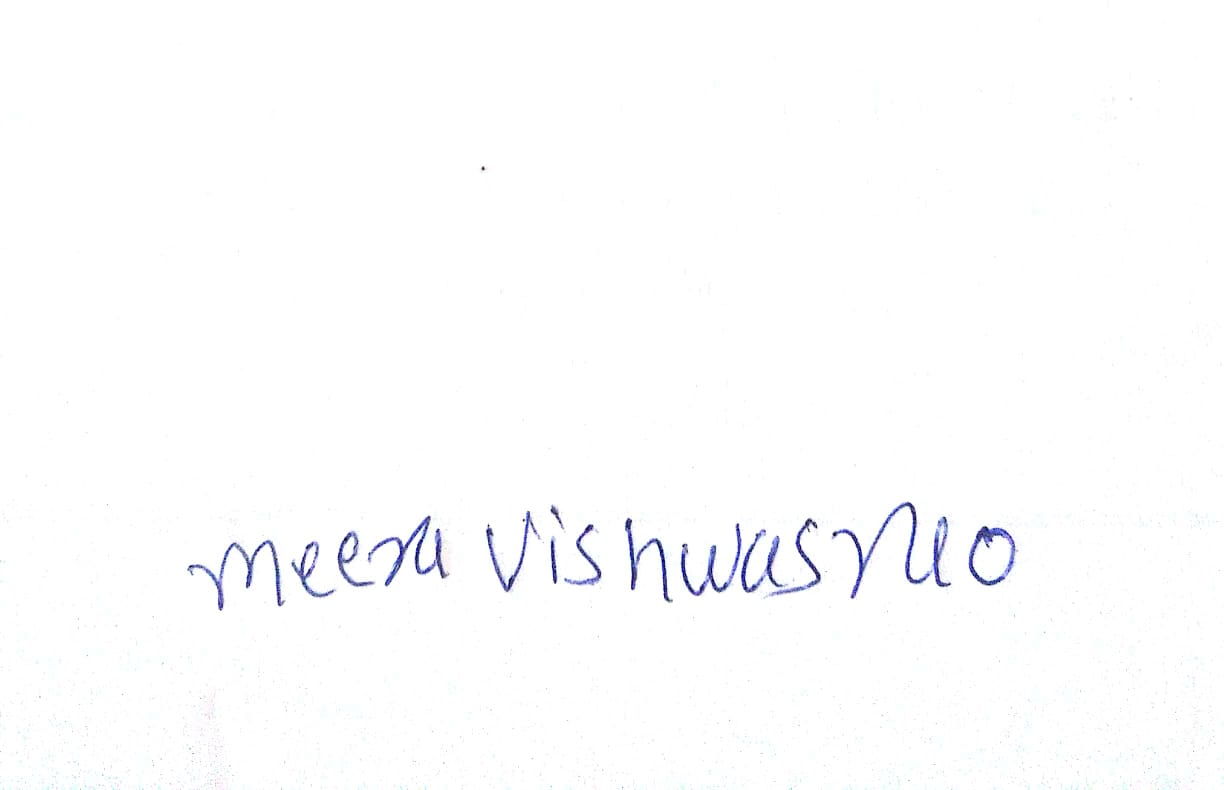 meera vishwasrao